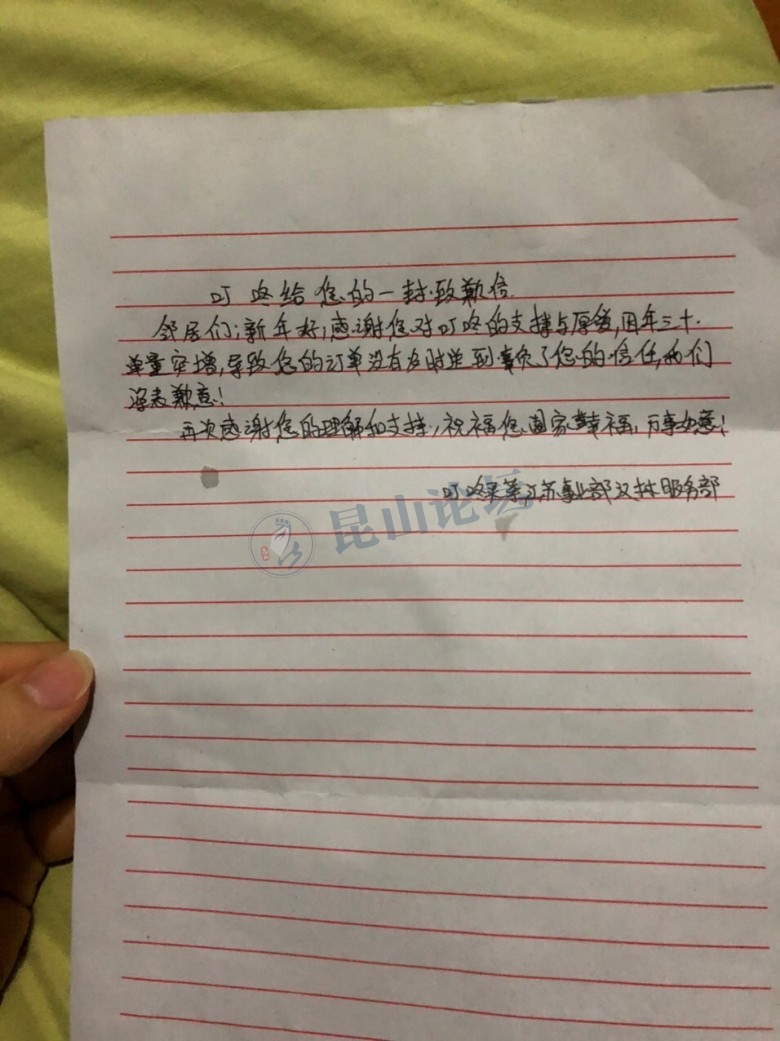 叮咚给您的一封致歉信
邻居们:新年好,感谢您对叮咚的支持与厚爱,因年三十
单量突增,导致您的订单没有及时送到辜负了您的信任,我们
深表歉意!
再次感谢您的理解和支持,祝福您阖家幸福,万事如意!
叮咚买菜江苏事业部汉林服务部
昆山论坛